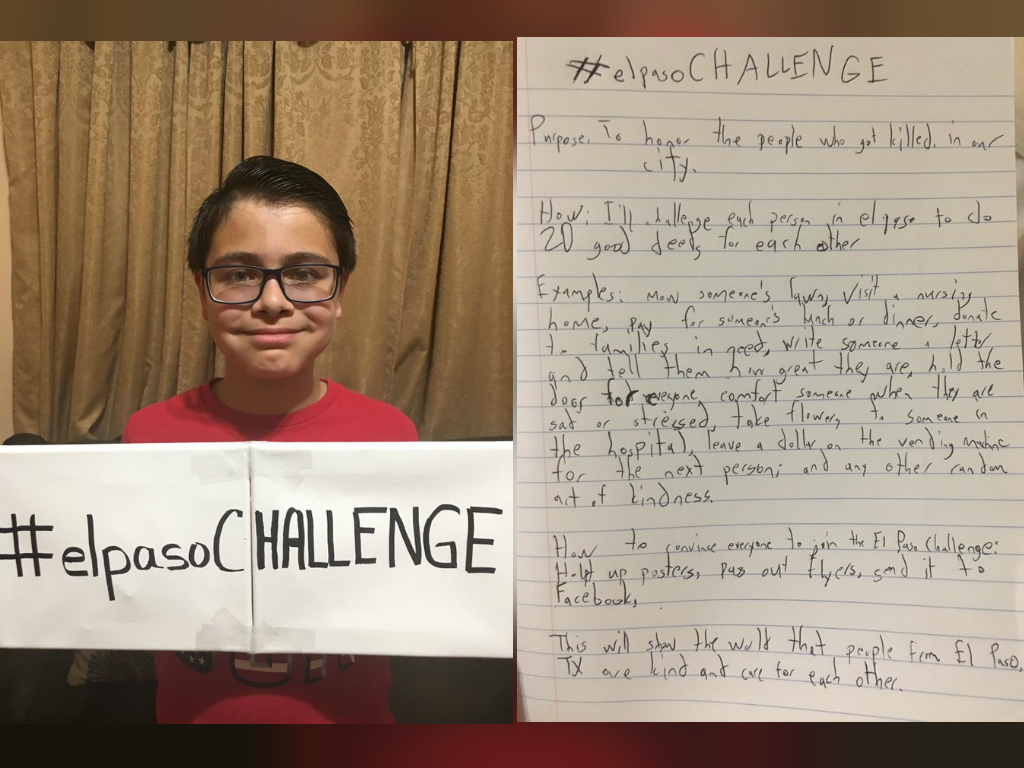 #elpasoCHALLENGE
#elpasoCHALLENGE
Purpose: To honor the people who got killed in our
city.
How: I'll challenge each person in el paso to do
20 good deeds for each other
Examples: mow someone's lawn, visit a nursing
home, pay for someone's lunch or dinner, donate
to families in need, write someone a letter
and tell them how great they are, hold the
door for everyone, comfort someone when they are
sad or stressed, take flowers to someone in
the hospital, leave a dollar on the vending machine
for the next person; and any other random
act of kindness.
How to convince everyone to join the El Paso Challenge:
Help up posters, pass out flyers, send it to
Facebook,
This will show the world that people from El Paso,
TX are kind and care for each other.